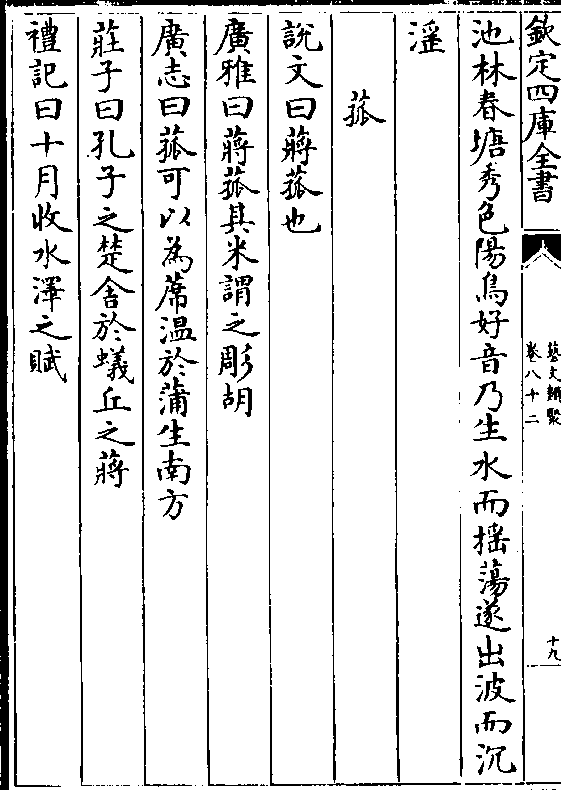 欽定四庫全書
藝文類聚
卷八十二
十九
池林春塘秀色陽鳥好音乃生水而揺蕩遂出波而沉
滛
菰
說文曰蔣菰也
廣雅曰蔣菰其米謂之彫胡
廣志曰菰可以為席温於蒲生南方
莊子曰孔子之楚舍於蟻丘之蔣
禮記曰十月收水澤之賦